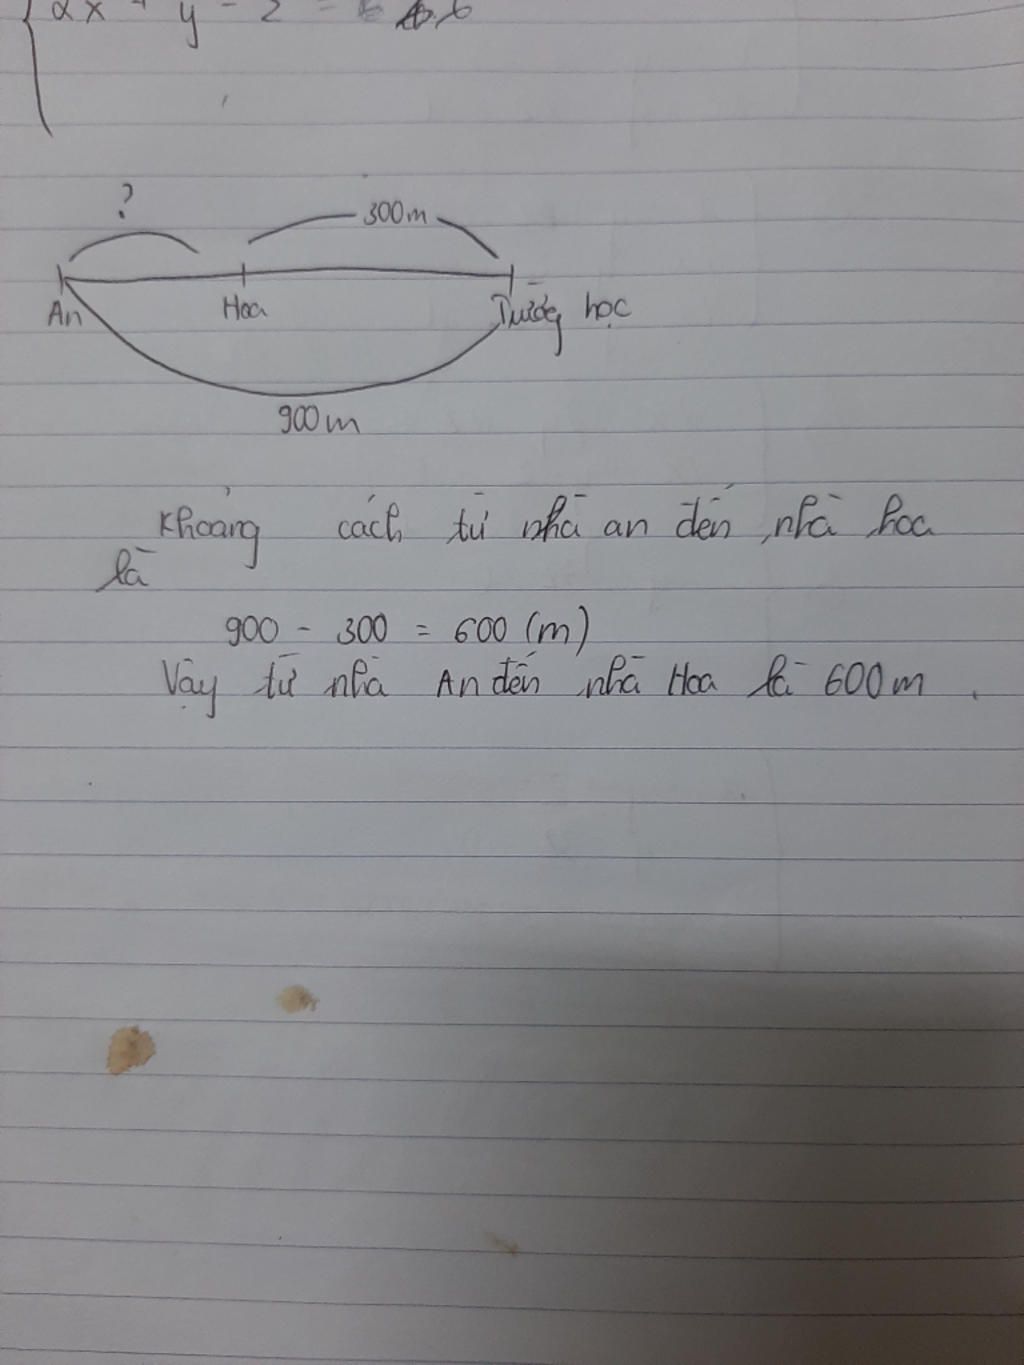 2x + y - 2 =
?
300m
An
Hoa
Trường học
900m
Khoảng cách từ nhà an đến nhà hoa
là
900 - 300 = 600 (m)
Vậy từ nhà An đến nhà Hoa là 600m.